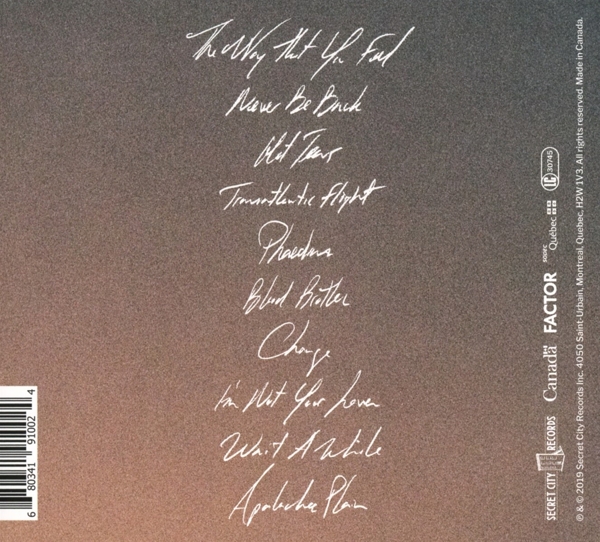 The Way That You Feel
Never Be Back
Hot Tears
Transatlantic Flight
Phaedrus
Blood Brother
Change
I'm Not Your Lover
Wait A While
Apalachee Plain
6 80341 91002 4
SECRET CITY RECORDS
Canadä
FACTOR
SODEC
Québec
IC 30745
℗ & © 2019 Secret City Records Inc. 4050 Saint-Urbain, Montreal, Quebec, H2W 1V3. All rights reserved. Made in Canada.